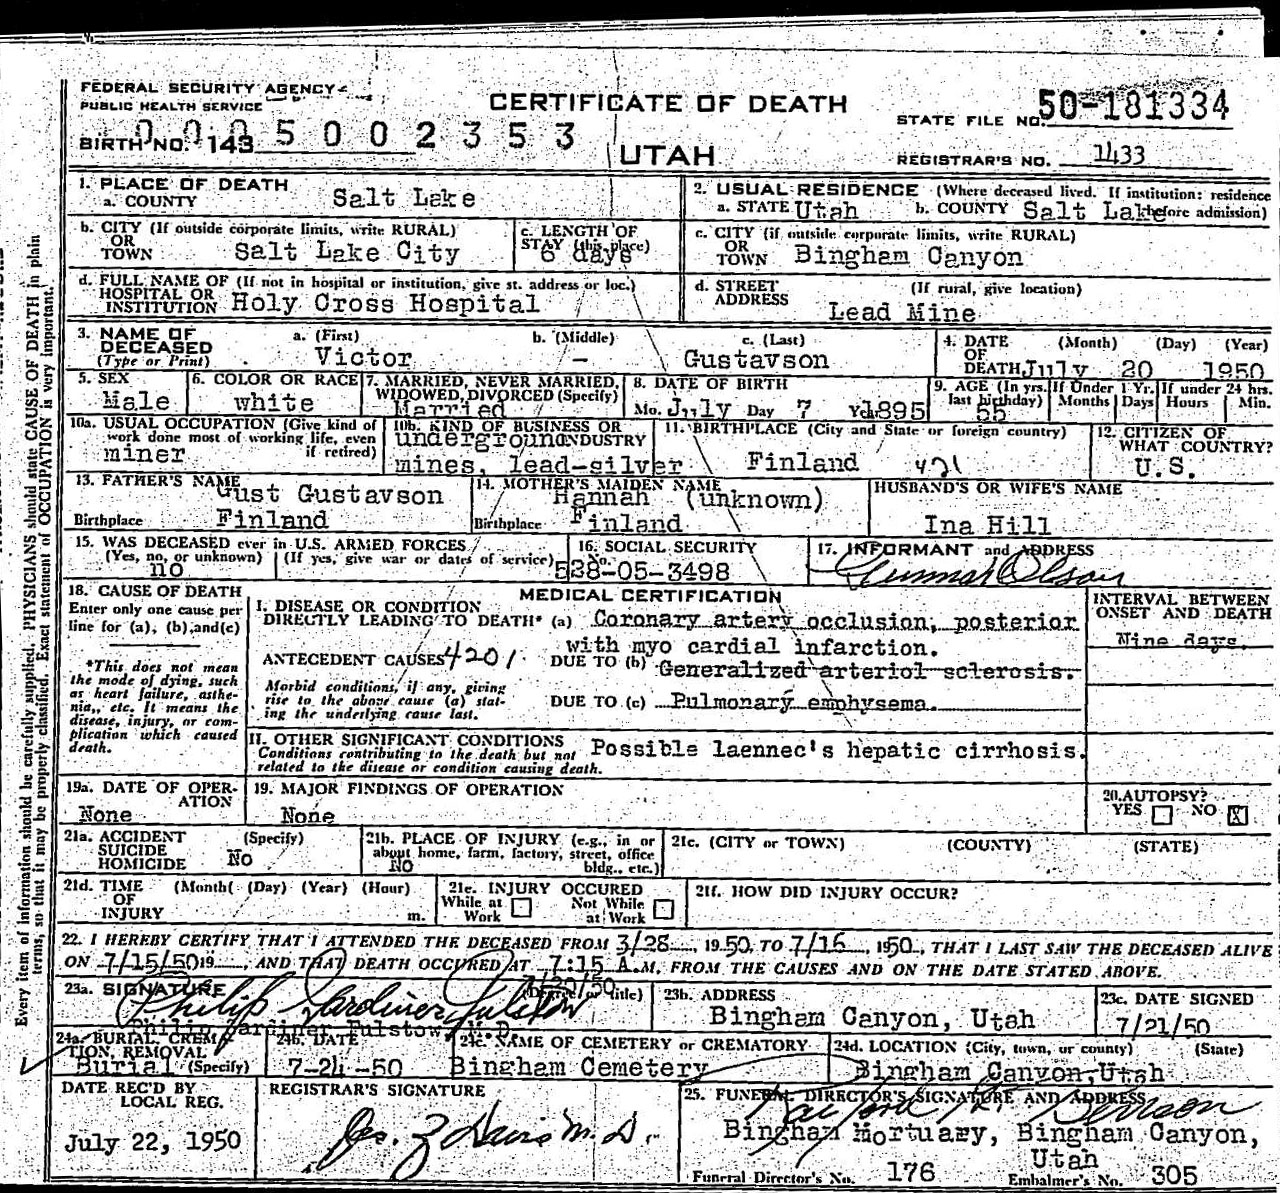 FEDERAL SECURITY AGENCY
PUBLIC HEALTH SERVICE
CERTIFICATE OF DEATH
STATE FILE NO. 50-181334
0005002353
BIRTH NO. 143
UTAH
REGISTRAR'S NO. 1433
1. PLACE OF DEATH
a. COUNTY Salt Lake
2. USUAL RESIDENCE (Where deceased lived. If institution: residence before admission)
a. STATE Utah b. COUNTY Salt Lake
b. CITY (If outside corporate limits, write RURAL)
OR
TOWN Salt Lake City
c. LENGTH OF
STAY (this place)
6 days
c. CITY (if outside corporate limits, write RURAL)
OR
TOWN Bingham Canyon
d. FULL NAME OF (If not in hospital or institution, give st. address or loc.)
HOSPITAL OR
INSTITUTION Holy Cross Hospital
d. STREET (If rural, give location)
ADDRESS
Lead Mine
3. NAME OF
DECEASED
(Type or Print)
a. (First)
Victor
b. (Middle)
-
c. (Last)
Gustavson
4. DATE (Month) (Day) (Year)
OF
DEATH July 20 1950
5. SEX
Male
6. COLOR OR RACE
white
7. MARRIED, NEVER MARRIED,
WIDOWED, DIVORCED (Specify)
Married
8. DATE OF BIRTH
Mo. July Day 7 Yr. 1895
9. AGE (In yrs. last birthday) 55
If Under 1 Yr. Months Days
If under 24 hrs. Hours Min.
10a. USUAL OCCUPATION (Give kind of
work done most of working life, even
if retired)
miner
10b. KIND OF BUSINESS OR
INDUSTRY
underground
mines, lead-silver
11. BIRTHPLACE (City and State or foreign country)
Finland 421
12. CITIZEN OF
WHAT COUNTRY?
U.S.
13. FATHER'S NAME
Gust Gustavson
Birthplace Finland
14. MOTHER'S MAIDEN NAME
Hannah (unknown)
Birthplace Finland
HUSBAND'S OR WIFE'S NAME
Ina Hill
15. WAS DECEASED ever in U.S. ARMED FORCES?
(Yes, no, or unknown) (If yes, give war or dates of service)
no
16. SOCIAL SECURITY
No.
528-05-3498
17. INFORMANT and ADDRESS
Gunnar Olson
18. CAUSE OF DEATH
Enter only one cause per
line for (a), (b), and (c)
*This does not mean
the mode of dying, such
as heart failure, asthe-
nia, etc. It means the
disease, injury, or com-
plication which caused
death.
MEDICAL CERTIFICATION
I. DISEASE OR CONDITION
DIRECTLY LEADING TO DEATH* (a) Coronary artery occlusion, posterior
with myo cardial infarction.
ANTECEDENT CAUSES 4201
DUE TO (b) Generalized arteriol sclerosis.
Morbid conditions, if any, giving
rise to the above cause (a) stat-
ing the underlying cause last.
DUE TO (c) Pulmonary emphysema.
II. OTHER SIGNIFICANT CONDITIONS
Conditions contributing to the death but not
related to the disease or condition causing death.
Possible laennec's hepatic cirrhosis.
INTERVAL BETWEEN
ONSET AND DEATH
Nine days.
19a. DATE OF OPER-
ATION
None
19. MAJOR FINDINGS OF OPERATION
None
20. AUTOPSY?
YES NO X
21a. ACCIDENT (Specify)
SUICIDE
HOMICIDE No
21b. PLACE OF INJURY (e.g., in or
about home, farm, factory, street, office
bldg., etc.)
No
21c. (CITY or TOWN) (COUNTY) (STATE)
21d. TIME (Month) (Day) (Year) (Hour)
OF
INJURY m.
21e. INJURY OCCURED
While at Work Not While at Work
21f. HOW DID INJURY OCCUR?
22. I HEREBY CERTIFY THAT I ATTENDED THE DECEASED FROM 3/28, 1950, TO 7/16, 1950, THAT I LAST SAW THE DECEASED ALIVE
ON 7/15/50 19, AND THAT DEATH OCCURED AT 7:15 A.M. FROM THE CAUSES AND ON THE DATE STATED ABOVE.
7/20/50
23a. SIGNATURE (Degree or title)
Philip Gardiner Fulstow
Philip Gardiner Fulstow, M.D.
23b. ADDRESS
Bingham Canyon, Utah
23c. DATE SIGNED
7/21/50
24a. BURIAL, CREMA-
TION, REMOVAL
(Specify)
Burial
24b. DATE
7-24-50
24c. NAME OF CEMETERY or CREMATORY
Bingham Cemetery
24d. LOCATION (City, town, or county) (State)
Bingham Canyon, Utah
DATE REC'D BY
LOCAL REG.
July 22, 1950
REGISTRAR'S SIGNATURE
Jas. Z Davis M.D.
25. FUNERAL DIRECTOR'S SIGNATURE AND ADDRESS
Bingham Mortuary, Bingham Canyon,
Utah
Funeral Director's No. 176 Embalmer's No. 305
Every item of information should be carefully supplied. PHYSICIANS should state CAUSE OF DEATH in plain
terms, so that it may be properly classified. Exact statement of OCCUPATION is very important.